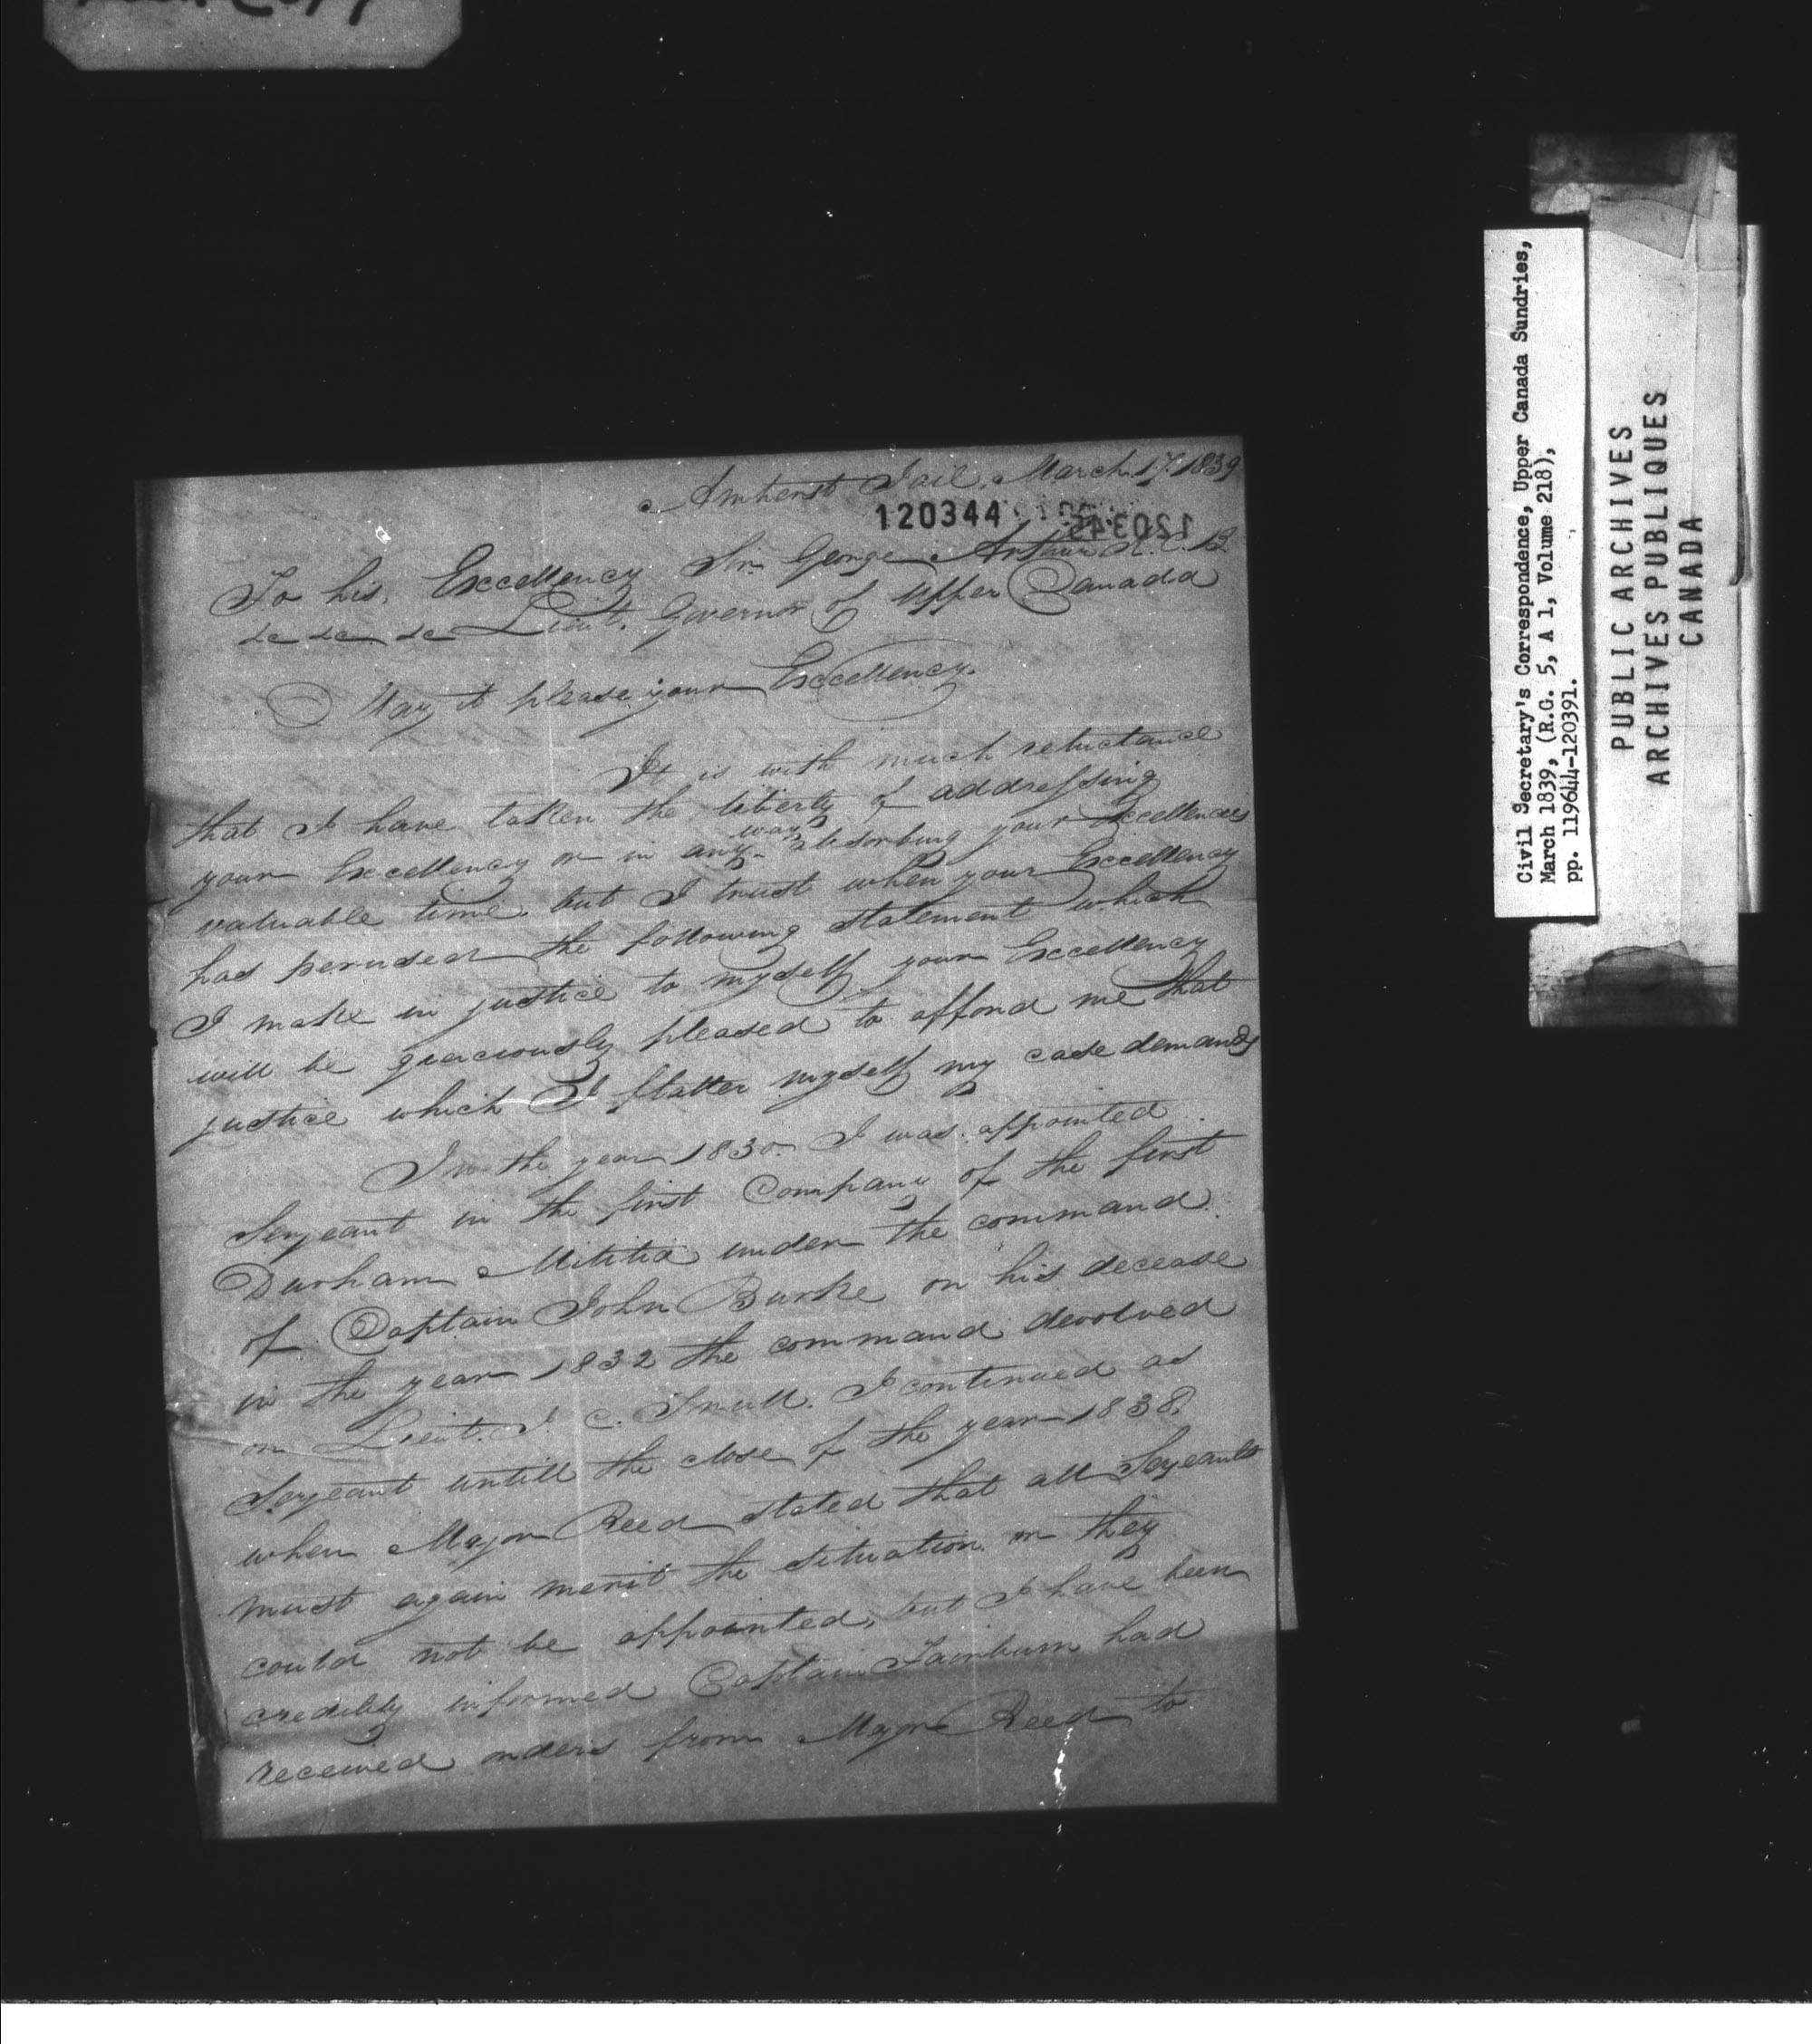 Amherst Jail, March 17. 1839
120344
To his Excellency Sir George Arthur K. C. B.
&c &c &c Lieut. Governor of Upper Canada
May it please your Excellency.
It is with much reluctance
that I have taken the liberty of addressing
your Excellency or in any way absorbing your Excellencies
valuable time, but I trust when your Excellency
has perused the following statement which
I make in justice to myself your Excellency
will be graciously pleased to afford me that
justice which I flatter myself my case demands
In the year 1830. I was appointed
Sergeant in the first Company of the first
Durham Militia under the command
of Captain John Burke on his decease
in the year 1832 the command devolved
on Lieut. J. C. Smull. I continued as
Sergeant untill the close of the year 1838
when Major Reed stated that all Sergeants
must again merit the situation or they
could not be appointed, but I have been
credibly informed Captain Fairburn had
received orders from Major Reed to
Civil Secretary's Correspondence, Upper Canada Sundries,
March 1839, (R.G. 5, A 1, Volume 218),
pp. 119644-120391.
PUBLIC ARCHIVES
ARCHIVES PUBLIQUES
CANADA